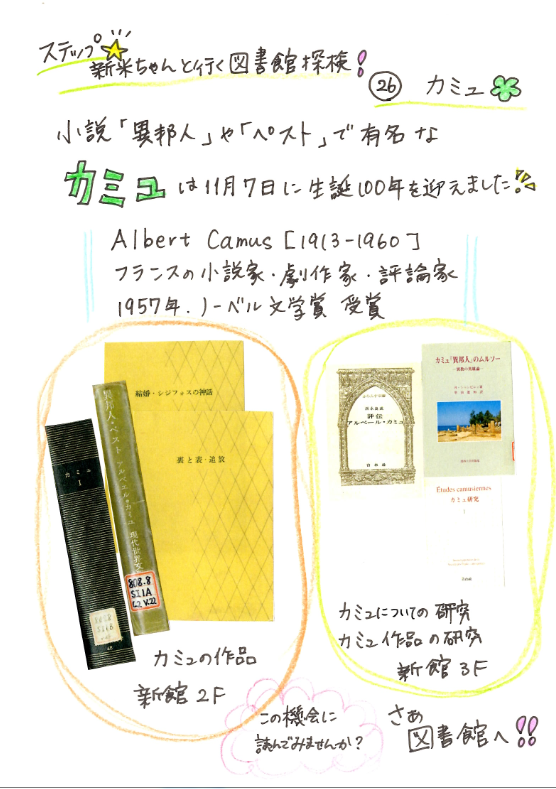 ステップ
新米ちゃんと行く図書館探検!
㉖ カミュ
小説「異邦人」や「ペスト」で有名な
カミュは11月7日に生誕100年を迎えました!!
Albert Camus [1913-1960]
フランスの小説家・劇作家・評論家
1957年.ノーベル文学賞 受賞
結婚・シジフォスの神話
異邦人・ペスト アルベール・カミュ 現代世界文
裏と表・追放
カミュ
I
808.8
SIIA
V.22
カミュの作品
新館2F
評伝
アルベール・カミュ
カミュ「異邦人」のムルソー
Etudes camusiennes
カミュ研究
カミュについての研究
カミュ作品の研究
新館3F
この機会に
読んでみませんか?
さあ
図書館へ!!